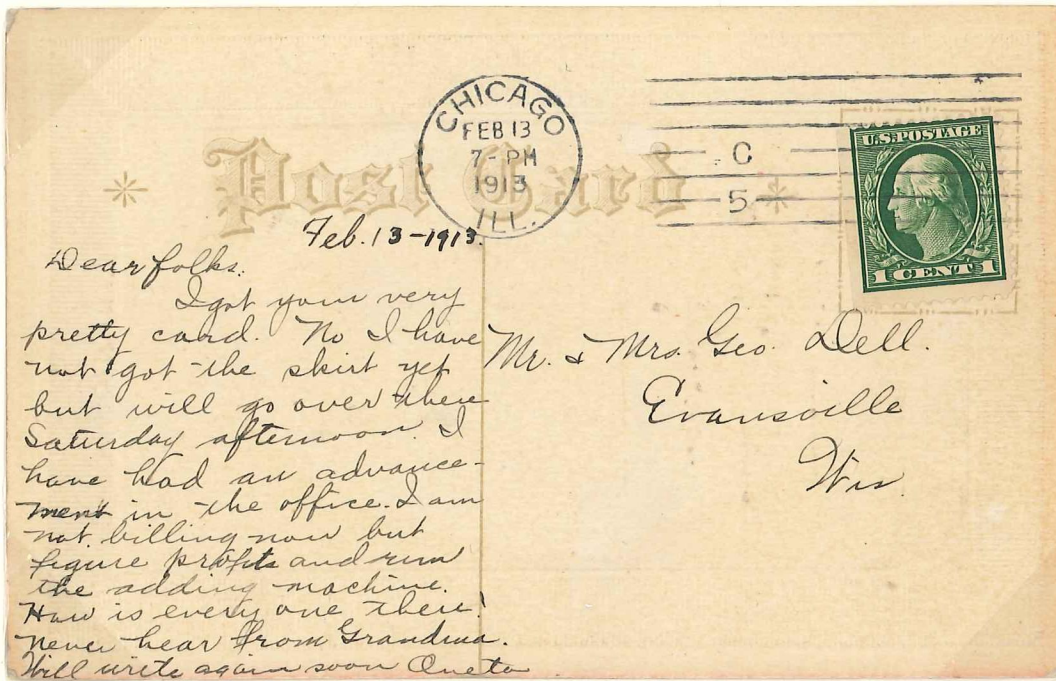 Post Card
CHICAGO
FEB 13
7-PM
1913
ILL.
C
5
U.S. POSTAGE
1 CENT 1
Feb. 13-1913.
Dear folks.
I got your very
pretty card. No I have
not got the skirt yet
but will go over there
Saturday afternoon. I
have had an advance-
ment in the office. I am
not billing now but
figure profits and run
the adding machine.
How is every one there!
never hear from Grandma.
Will write again soon Oneta
Mr. & Mrs. Geo. Dell.
Evansville
Wis.